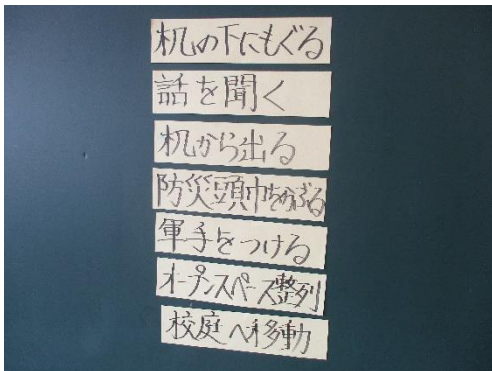 机の下にもぐる
話を聞く
机から出る
防災頭巾をかぶる
軍手をつける
オープンスペース整列
校庭へ移動